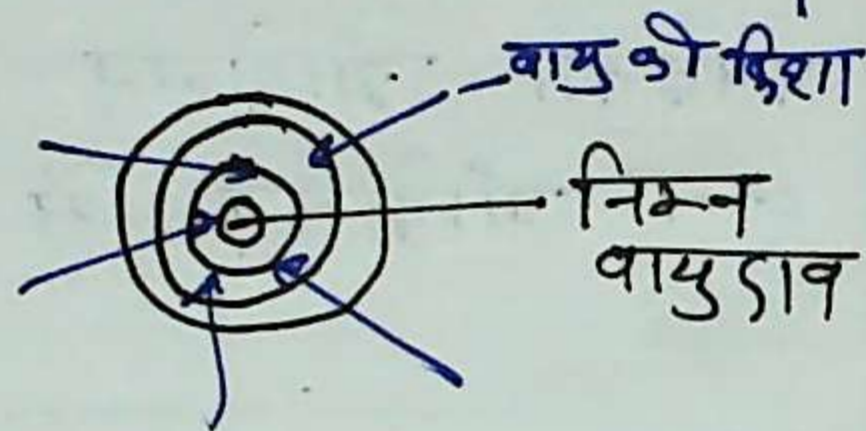 वायु की दिशा
निम्न
वायुदाव